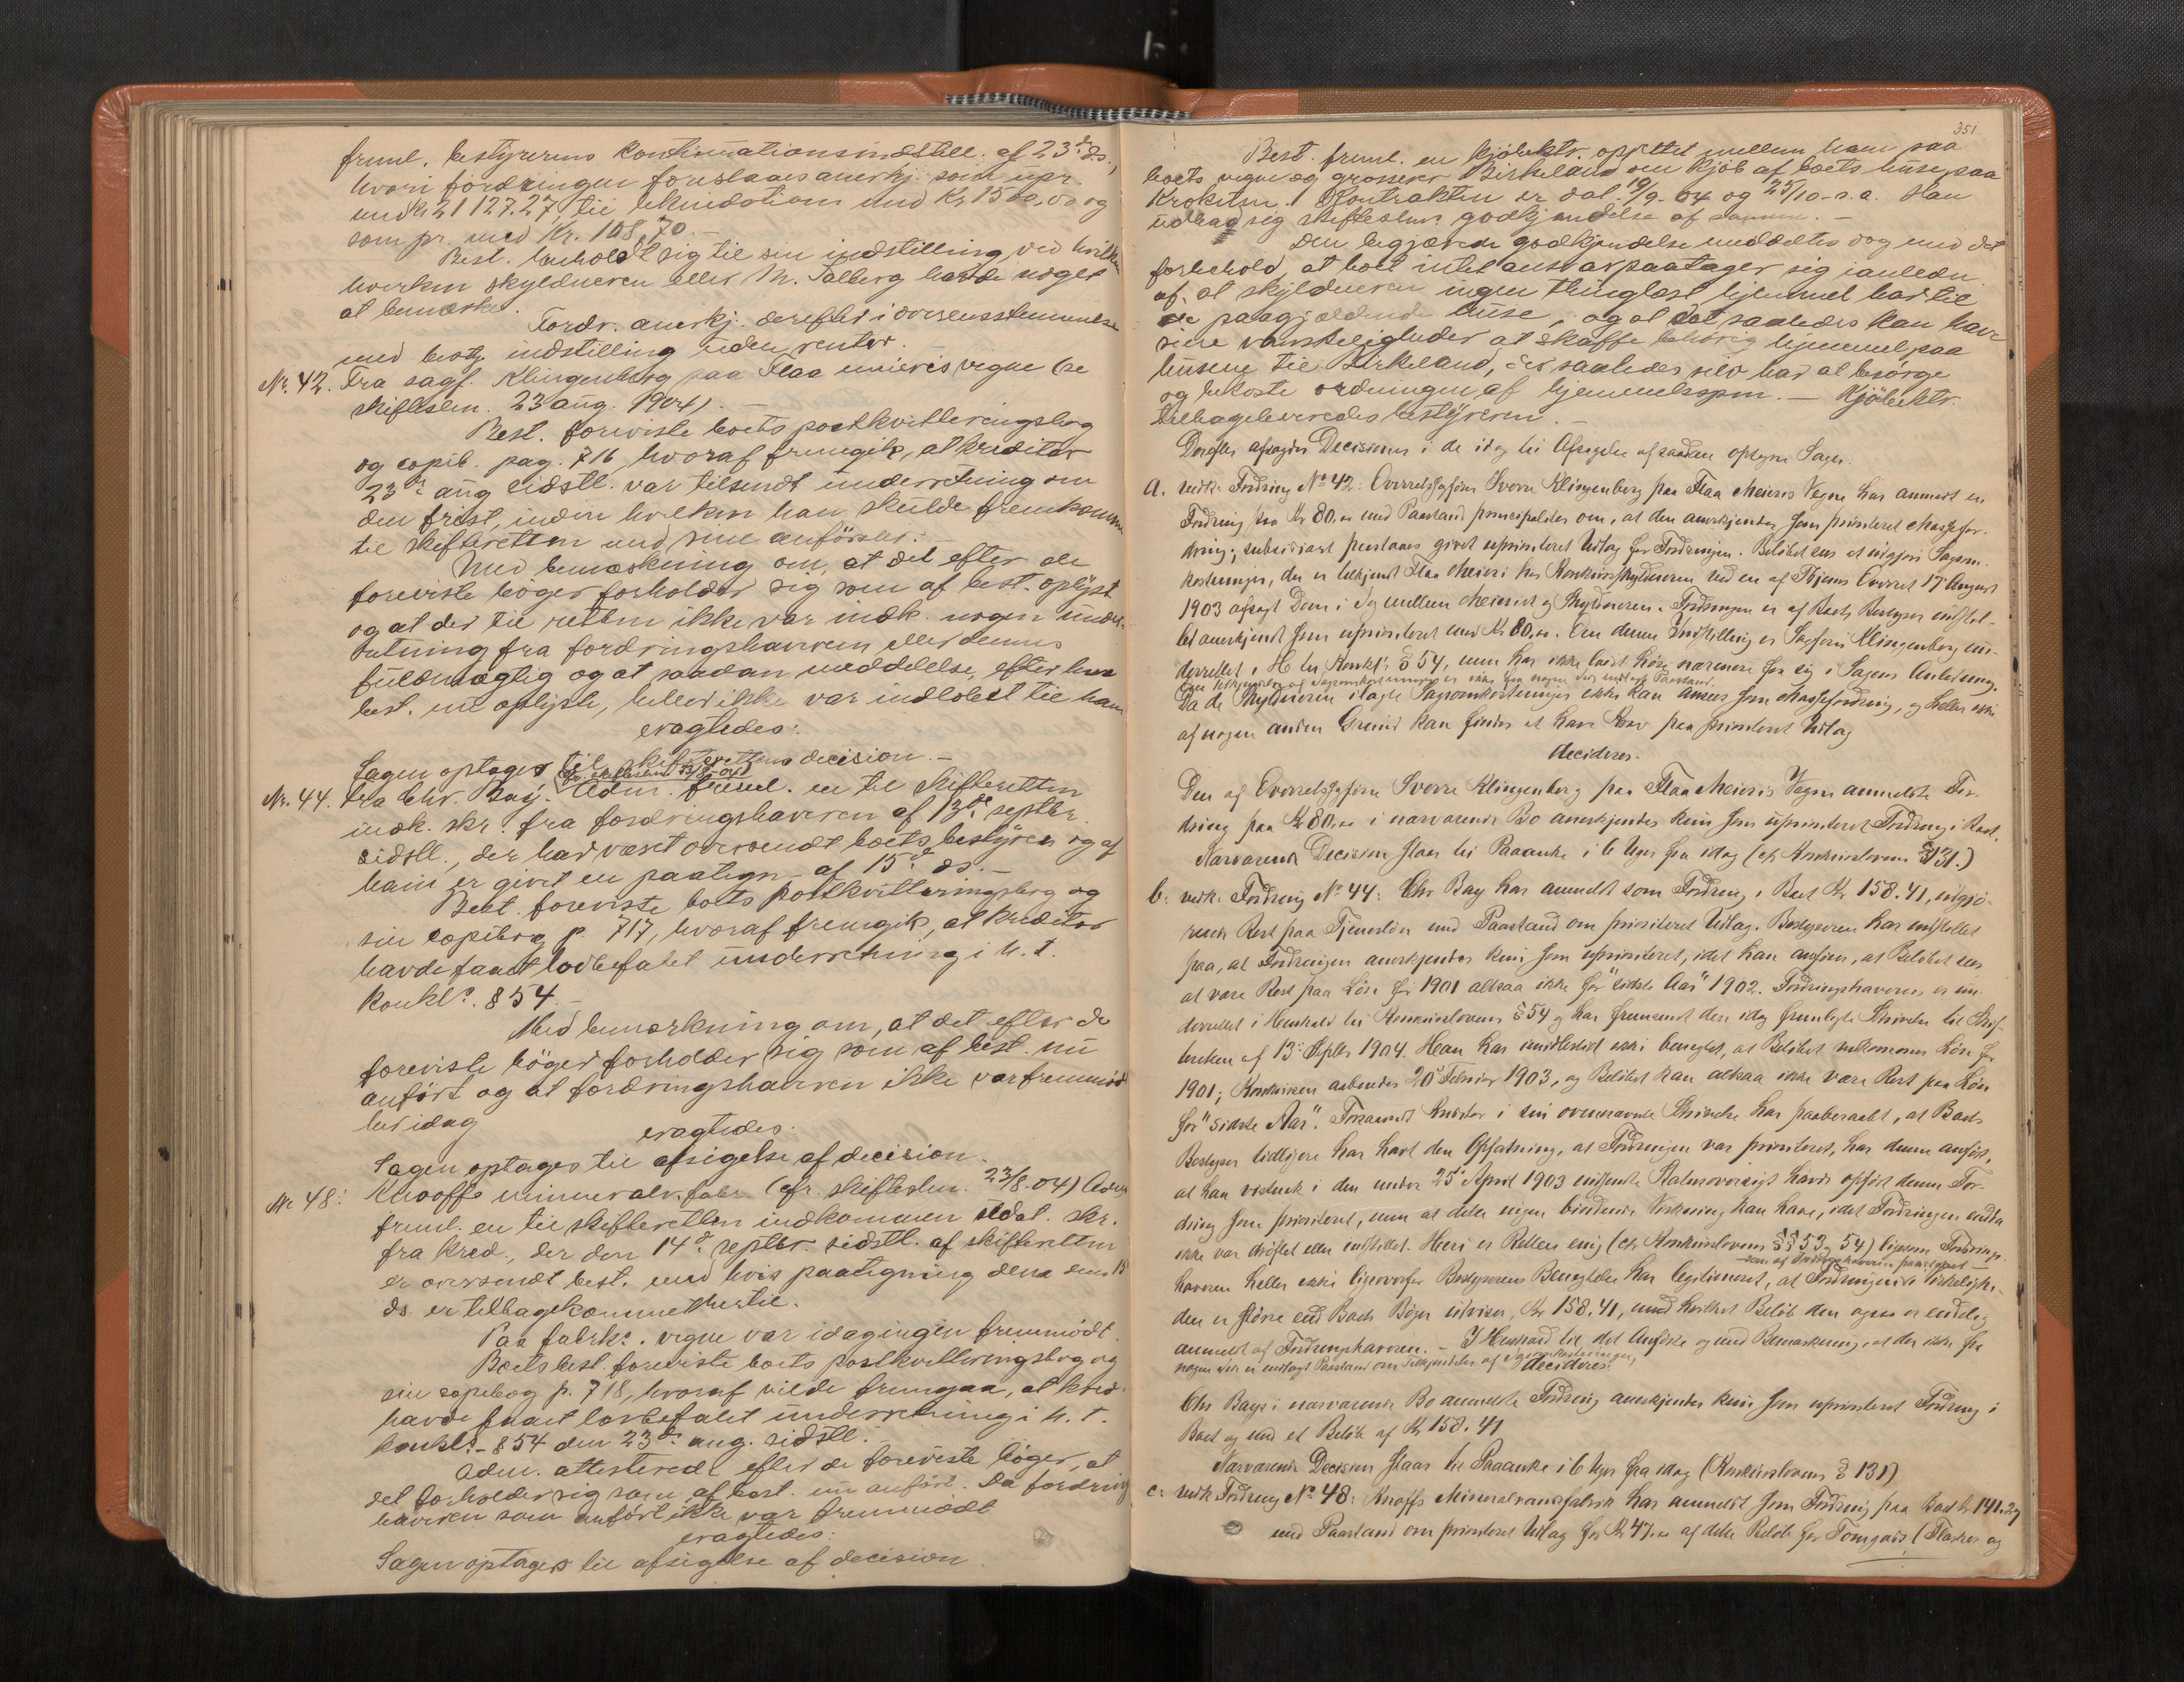 freml. bestyrerens konfirmationsindstill. af 23de ds.,
hvori fordringen foreslaaes anerkj. som upr.
med kr 21127.27, til likvidation med Kr 1500,00 og
som pr. med Kr. 108,70.-
Best. henholdt sig til sin indstilling, ved hvilken
hverken skyldneren eller M. Solberg havde noget
at bemærke.
Fordr. anerkj. derefter i overensstemmelse
med best. indstilling uden renter.
No. 42. Fra sagf. Klingenberg paa Flaa meieris vegne (se
skifteslm. 23 aug. 1904).-
Best. foreviste boets postkvitteringsbog
og copib. pag. 716, hvoraf fremgik, at kreditor
23de aug sidstl. var tilsendt underretning om
den frist, inden hvilken han skulde fremkomme
til skifteretten med sine anførsler.-
Med bemærkning om, at det efter de
foreviste bøger forholder sig som af best. oplyst
og at der til retten ikke var indk. nogen under-
retning fra fordringshaveren eller dennes
fuldmægtig og at saadan meddelelse, efter hvad
best. nu oplyste, heller ikke var indløbet til ham
eragtedes:
Sagen optages til skifterettens decision.-
(se skifteslm. 23/8-04)
No. 44. Fra Chr. Bay. Adm. freml. en til skifteretten
indk. skr. fra fordringshaveren af 13de septbr.
sidstl., der har været oversendt boets bestyrer og af
ham er givet en paategn. af 15de ds.-
Best. foreviste boets postkvitteringsbog og
sin copibog p. 717, hvoraf fremgik, at kreditor
havde faaet lovbefalet underretning i h. t.
konkl. § 54.-
Med bemærkning om, at det efter de
foreviste bøger forholder sig som af best. nu
anført og at fordringshaveren ikke var fremmødt
her idag
eragtedes:
Sagen optages til afsigelse af decision.
No 48: Knoffs mineralv.fabr. (cfr. skifteslm. 23/8.04) Adm
freml. en til skifteretten indkommen udat. skr.
fra kred., der den 14de septbr. sidstl. af skifteretten
er oversendt best. med hvis paategning den 15
ds er tilbagekommet hertil.
Paa fabrks. vegne var idag ingen fremmødt.
Boets best. foreviste boets postkvitteringsbog og
sin copibog p. 718, hvoraf vilde fremgaa, at kred.
havde faaet lovbefalet underretning i h. t.
konkl. § 54 den 23de aug. sidstl.
Adm. attesterede efter de foreviste bøger, at
det forholder sig som af best. nu anført. Da fordrings
haveren som anført ikke var fremmødt
eragtedes:
Sagen optages til afsigelse af decision.
351.
Best. freml. en kjøbektr. oprettet mellem ham paa
boets vegne og grosserer Birkeland om kjøb af boets huse paa
Krokum. Kontrakten er dat. 19/9-04 og 25/10-s.a. Han
udbad sig skifteslm godkjendelse af samme.-
Den begjærede godkjendelse meddeltes dog med det
forbehold, at boet intet ansvar paatager sig i anledn.
af, at skyldneren ingen thinglæst hjemmel har til
de paagjældende huse, og at det saaledes kan have
sine vanskeligheder at skaffe behørig hjemmel paa
husene til Birkeland, der saaledes selv har at besørge
og bekoste ordningen af hjemmelsspm.- Kjøbektr.
tilbageleveredes bestyreren.-
Derefter afsagdes Decisioner i de idag til Afsigelse af saadan optagne Sager.
a. vedk. Fordring No 42. Overretssagfører Sverre Klingenberg paa Flaa Meieris Vegne har anmeldt en
Fordring paa Kr 80,00 med Paastand principaliter om, at den anerkjendes som prioriteret Massefor-
dring; subsidiært paastaaes givet uprioriteret Udlag for Fordringen. Beløbet sees at udgjøre Sagsom-
kostninger, der er tilkjendt Flaa Meieri hos Konkursskyldneren ved en af Thjems Overret 17 August
1903 afsagt Dom i Sag mellem Meieriet og Skyldneren. Fordringen er af Boets Bestyrer indstil-
let anerkjendt som uprioriteret med Kr 80,00. Om denne Indstilling er Sagfører Klingenberg un-
derrettet i H. til Konkl. § 54, men har ikke ladet høre nærmere fra sig i Sagens Anledning.
Om Tilkjendelse af Sagsomkostninger er ikke fra nogen Side nedlagt Paastand.
Da de Skyldneren ilagte Sagsomkostninger ikke kan ansees som Massefordring, og heller ikke
af nogen anden Grund kan findes at have Krav paa prioriteret Udlag
decideres:
Den af Overretssagfører Sverre Klingenberg paa Flaa Meieris Vegne anmeldte For-
dring paa Kr 80,00 i nærværende Bo anerkjendes kun som uprioriteret Fordring i Boet.
Nærværende Decision staar til Paaanke i 6 Uger fra idag (cfr Konkurslovens § 131.)
b: vedk. Fordring No 44: Chr Bay har anmeldt som Fordring i Boet Kr 158.41, udgjø-
rende Rest paa Tjenesteløn med Paastand om prioriteret Udlag. Bestyreren har indstillet
paa, at Fordringen anerkjendes kun som uprioriteret, idet han anfører, at Beløbet sees
at være Rest paa Løn for 1901 altsaa ikke for "sidste Aar" 1902. Fordringshaveren er un-
derrettet i Henhold til Konkurslovens § 54 og har fremsendt den idag fremlagte Skrivelse til Skif-
teretten af 13de Septbr 1904. Han har imidlertid ikke benegtet, at Beløbet vedkommer Løn for
1901; Konkursen aabnedes 20de Februar 1903, og Beløbet kan altsaa ikke være Rest paa Løn
for "sidste Aar". Forsaavidt Kreditor i sin ovennævnte Skrivelse har paaberaabt, at Boets
Bestyrer tidligere har havt den Opfatning, at Fordringen var prioriteret, har denne anført,
at han vistnok i den under 25de April 1903 indsendte Statusoversigt havde opført denne For-
dring som prioriteret, men at dette ingen bindende Virkning kan have, idet Fordringen endda
ikke var drøftet eller indstillet. Heri er Retten enig (cfr Konkurslovens §§ 53 og 54) ligesom Fordrings-
- som af Fordringshaveren paastaaet -
haveren heller ikke ligeoverfor Bestyrerens Benegtelse har legitimeret, at Fordringen i Virkelighe-
den er større end Boets Bøger udviser, Kr 158.41, med hvilket Beløb den ogsaa er endelig
anmeldt af Fordringshaveren.- I Henhold til det Anførte og med Bemærkning, at der ikke fra
nogen Side er nedlagt Paastand om Tilkjendelse af Sagsomkostninger,
decideres:
Chr Bays i nærværende Bo anmeldte Fordring anerkjendes kun som uprioriteret Fordring i
Boet og med et Beløb af Kr 158.41
Nærværende Decision staar til Paaanke i 6 Uger fra idag (Konkurslovens § 131)
c: vedk. Fordring No 48: Knoffs Mineralvandfabrik har anmeldt som Fordring paa Boet kr 141.29
med Paastand om prioriteret Udlag for Kr 47.00 af dette Beløb for Tomgods (Flasker og